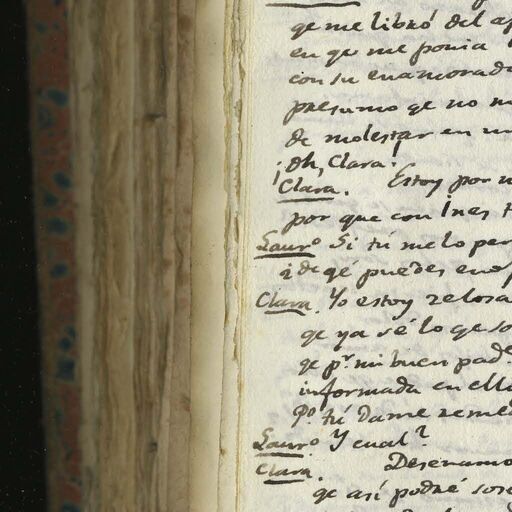 qe me libró del
en qe me ponia
con su enamorad
presumo qe no m
de molestar en
¡Oh, Clara!
Clara. Estoy por
por que con Ines
Lauro Si tú me lo per
¿de qé puedes
Clara. Yo estoy zelosa
qe ya sé lo qe so
qe pr. mi buen pad
informada en ell
Po. tú dame remed
Lauro Y cual?
Clara. Desenamo
qe así podré sos